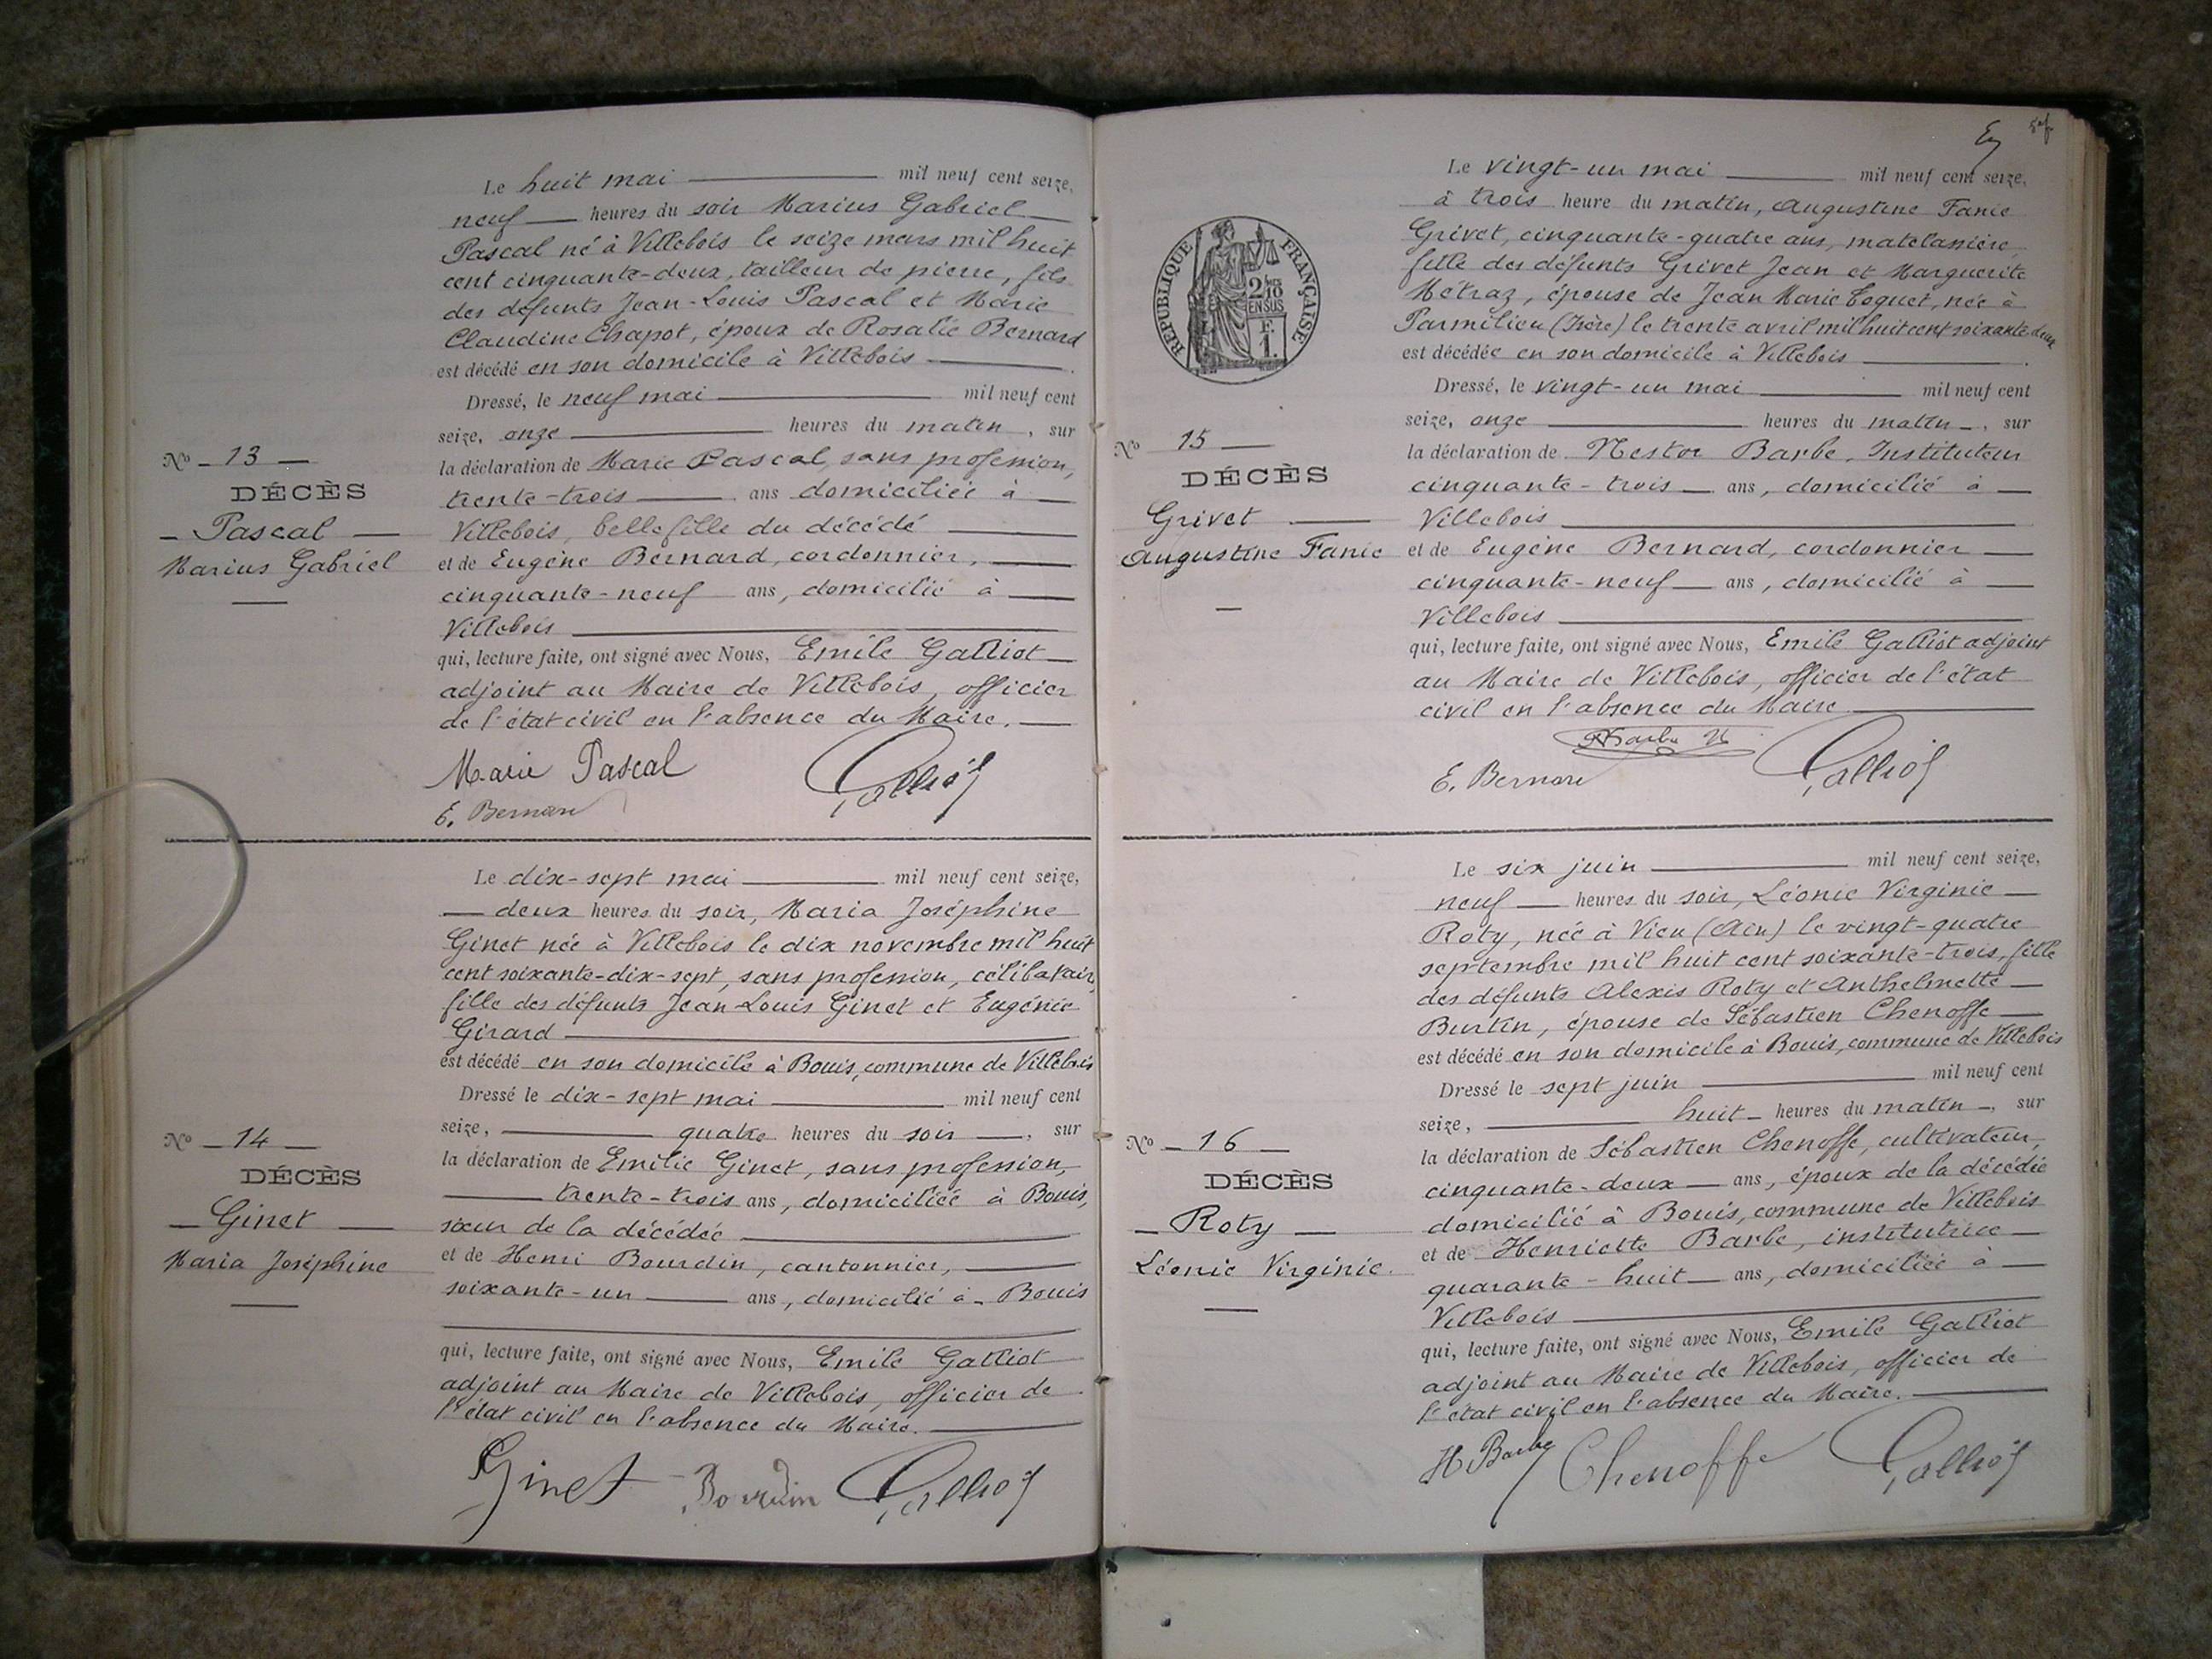 Le huit mai mil neuf cent seize,
neuf heures du soir Marius Gabriel
Pascal né à Villebois le seize mars mil huit
cent cinquante-deux, tailleur de pierre, fils
des défunts Jean-Louis Pascal et Marie
Claudine Chapot, époux de Rosalie Bernard
est décédé en son domicile à Villebois.
Dressé, le neuf mai mil neuf cent
seize, onze heures du matin, sur
la déclaration de Marie Pascal, sans profession,
trente-trois ans domiciliée à
Villebois, belle fille du décédé
et de Eugène Bernard, cordonnier,
cinquante-neuf ans, domicilié à
Villebois
qui, lecture faite, ont signé avec Nous, Emile Galliot
adjoint au Maire de Villebois, officier
de l'état civil en l'absence du Maire.
Marie Pascal Galliot
E. Bernard
No 13
DÉCÈS
Pascal
Marius Gabriel
Le dix-sept mai mil neuf cent seize,
deux heures du soir, Maria Joséphine
Ginet née à Villebois le dix novembre mil huit
cent soixante-dix-sept, sans profession, célibataire,
fille des défunts Jean-Louis Ginet et Eugénie
Girard
est décédé en son domicile à Bouis, commune de Villebois
Dressé le dix-sept mai mil neuf cent
seize, quatre heures du soir, sur
la déclaration de Emilie Ginet, sans profession,
trente-trois ans, domiciliée à Bouis,
sœur de la décédée
et de Henri Bourdin, cantonnier,
soixante-un ans, domicilié à Bouis
qui, lecture faite, ont signé avec Nous, Emile Galliot
adjoint au Maire de Villebois, officier de
l'état civil en l'absence du Maire.
Ginet Bourdin Galliot
No 14
DÉCÈS
Ginet
Maria Joséphine
RÉPUBLIQUE FRANÇAISE
2/10 EN SUS
F. 1.
Le vingt-un mai mil neuf cent seize,
à trois heure du matin, Augustine Fanie
Grivet, cinquante-quatre ans, matelassière,
fille des défunts Grivet Jean et Marguerite
Métraz, épouse de Jean Marie Coquet, née à
Parmilieu (Isère) le trente avril mil huit cent soixante deux
est décédée en son domicile à Villebois.
Dressé, le vingt-un mai mil neuf cent
seize, onze heures du matin, sur
la déclaration de Nestor Barbe, Instituteur
cinquante-trois ans, domicilié à
Villebois
et de Eugène Bernard, cordonnier
cinquante-neuf ans, domicilié à
Villebois
qui, lecture faite, ont signé avec Nous, Emile Galliot adjoint
au Maire de Villebois, officier de l'état
civil en l'absence du Maire.
Barbe N
E. Bernard Galliot
No 15
DÉCÈS
Grivet
Augustine Fanie
Le six juin mil neuf cent seize,
neuf heures du soir, Léonie Virginie
Roty, née à Vieu (Ain) le vingt-quatre
septembre mil huit cent soixante-trois, fille
des défunts Alexis Roty et Anthelmette
Burtin, épouse de Sébastien Chenoffe
est décédé en son domicile à Bouis, commune de Villebois
Dressé le sept juin mil neuf cent
seize, huit heures du matin, sur
la déclaration de Sébastien Chenoffe, cultivateur,
cinquante-deux ans, époux de la décédée
domicilié à Bouis, commune de Villebois
et de Henriette Barbe, institutrice
quarante-huit ans, domiciliée à
Villebois
qui, lecture faite, ont signé avec Nous, Emile Galliot
adjoint au Maire de Villebois, officier de
l'état civil en l'absence du Maire.
H Barbe Chenoffe Galliot
No 16
DÉCÈS
Roty
Léonie Virginie.